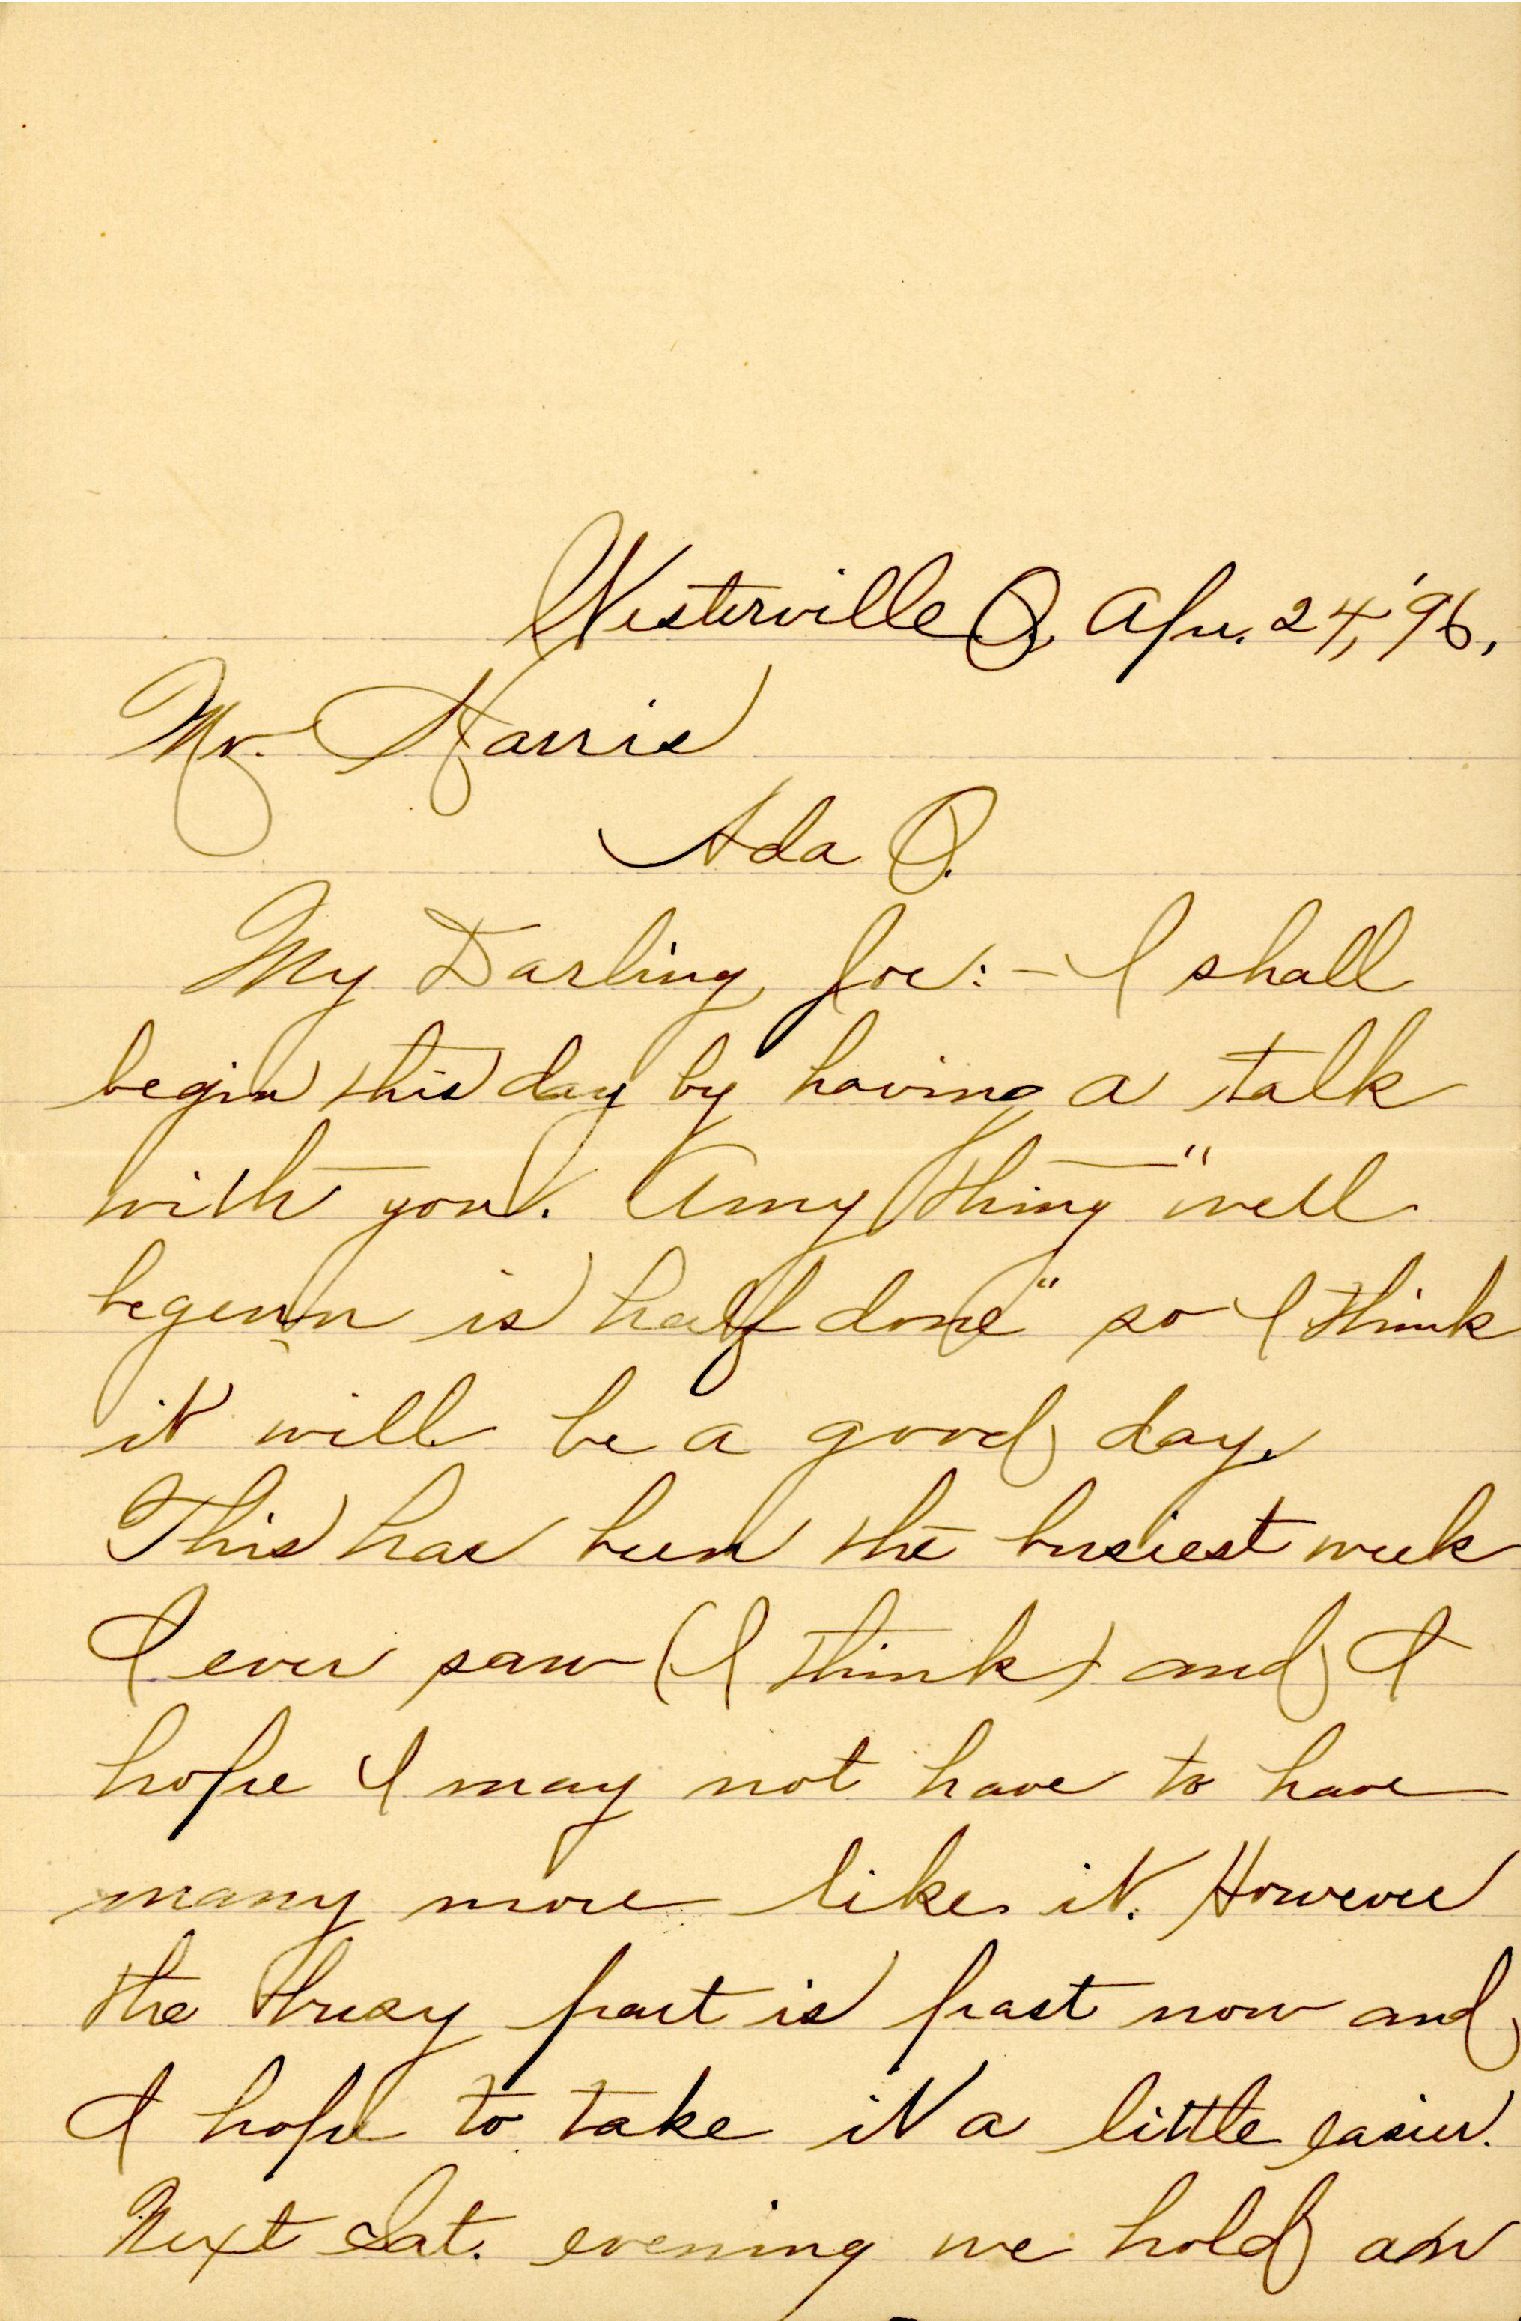 Westerville O. Apr. 24, '96.
Mr. Harris
Ada O.
My Darling Joe:- I shall
begin this day by having a talk
with you. Any thing "well
begunn is half done" so I think
it will be a good day.
This has been the busiest week
I ever saw (I think) and I
hope I may not have to have
many more like it. However
the busy part is past now and
I hope to take it a little easier.
Next Sat. evening we hold an